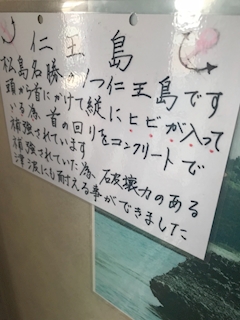 仁王島
松島名勝の1つ仁王島です
頭から首にかけて縦にヒビが入って
いる為、首の回りをコンクリートで
補強されています
補強されていた為、破壊力のある
津波にも耐える事ができました